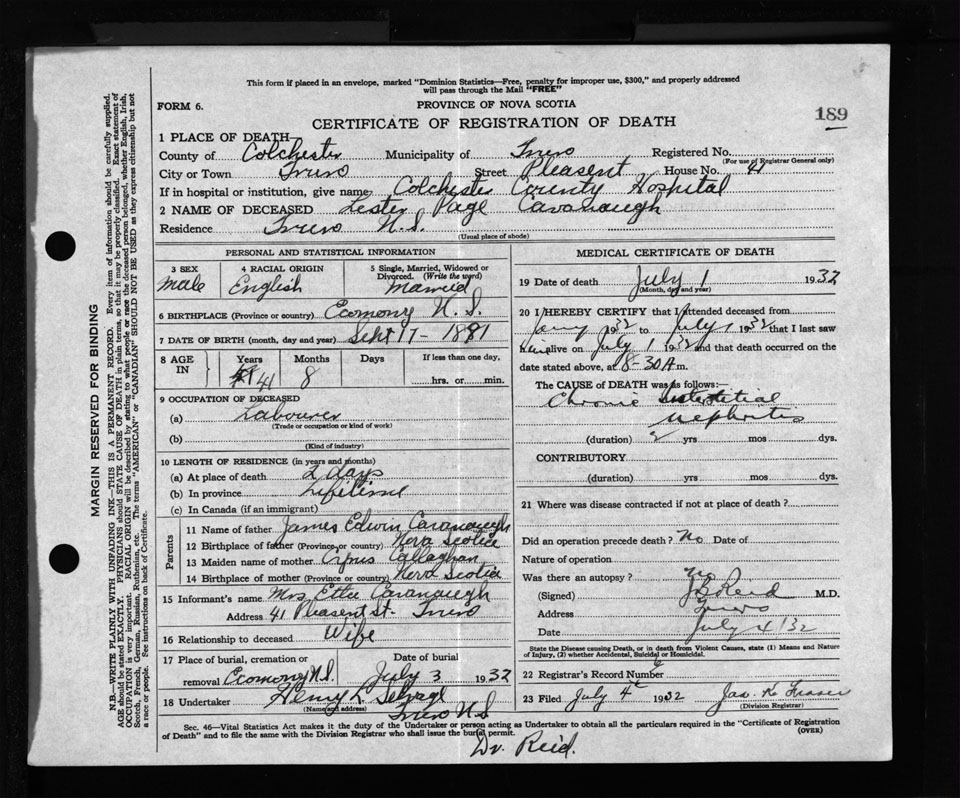 This form if placed in an envelope, marked "Dominion Statistics—Free, penalty for improper use, $300," and properly addressed
will pass through the Mail "FREE"
FORM 6.
PROVINCE OF NOVA SCOTIA
189
CERTIFICATE OF REGISTRATION OF DEATH
1 PLACE OF DEATH—
County of Colchester Municipality of Truro Registered No.
(For use of Registrar General only)
City or Town Truro Street Pleasent House No. 41
If in hospital or institution, give name Colchester County Hospital
2 NAME OF DECEASED Lester Page Cavanaugh
Residence Truro N.S.
(Usual place of abode)
PERSONAL AND STATISTICAL INFORMATION
3 SEX Male
4 RACIAL ORIGIN English
5 Single, Married, Widowed or Divorced. (Write the word) Married
6 BIRTHPLACE (Province or country) Economy N.S.
7 DATE OF BIRTH (month, day and year) Sept 17 - 1881
8 AGE IN Years 41 Months 8 Days If less than one day, hrs. or min.
9 OCCUPATION OF DECEASED
(a) Labourer
(Trade or occupation or kind of work)
(b)
(Kind of industry)
10 LENGTH OF RESIDENCE (in years and months)
(a) At place of death 2 days
(b) In province Lifetime
(c) In Canada (if an immigrant)
Parents
11 Name of father James Edwin Cavanaugh
12 Birthplace of father (Province or country) Nova Scotia
13 Maiden name of mother Callaghan
14 Birthplace of mother (Province or country) Nova Scotia
15 Informant's name Mrs Cavanaugh
Address 41 Pleasent St. Truro
16 Relationship to deceased Wife
17 Place of burial, cremation or removal Economy N.S. Date of burial July 3 1932
18 Undertaker Henry L
(Name and address) Truro N.S
MEDICAL CERTIFICATE OF DEATH
19 Date of death July 1 1932
(Month, day and year)
20 I HEREBY CERTIFY that I attended deceased from
1932 to July 1 1932 that I last saw
him alive on July 1 1932 and that death occurred on the
date stated above, at 8-30 A m.
The CAUSE OF DEATH was as follows:
Chronic Interstitial
nephritis
(duration) 2 yrs mos dys.
CONTRIBUTORY
(duration) yrs mos dys.
21 Where was disease contracted if not at place of death?
Did an operation precede death? No Date of
Nature of operation
Was there an autopsy? No
(Signed) Reid M.D.
Address Truro
Date July 4/32
State the Disease causing Death, or in death from Violent Causes, state (1) Means and
Nature of Injury, (2) whether Accidental, Suicidal or Homicidal.
22 Registrar's Record Number
23 Filed July 4 1932 Jas. K. Fraser
(Division Registrar)
Sec. 46—Vital Statistics Act makes it the duty of the Undertaker or person acting as Undertaker to obtain all the particulars required in the "Certificate of Registration
of Death" and to file the same with the Division Registrar who shall issue the burial permit.
(OVER)
Dr. Reid.
MARGIN RESERVED FOR BINDING
N.B.—WRITE PLAINLY WITH UNFADING INK—THIS IS A PERMANENT RECORD. Every item of information should be carefully supplied.
AGE should be stated EXACTLY. PHYSICIANS should STATE CAUSE OF DEATH in plain terms, so that it may be properly classified. Exact statement of
OCCUPATION is very important. RACIAL ORIGIN will be described by stating to what people or race the deceased person belonged, whether English, Irish,
Scotch, French, German, Russian, Ruthenian, etc. The terms "AMERICAN" or "CANADIAN" SHOULD NOT BE USED as they express citizenship but not
a race or people. See instructions on back of Certificate.